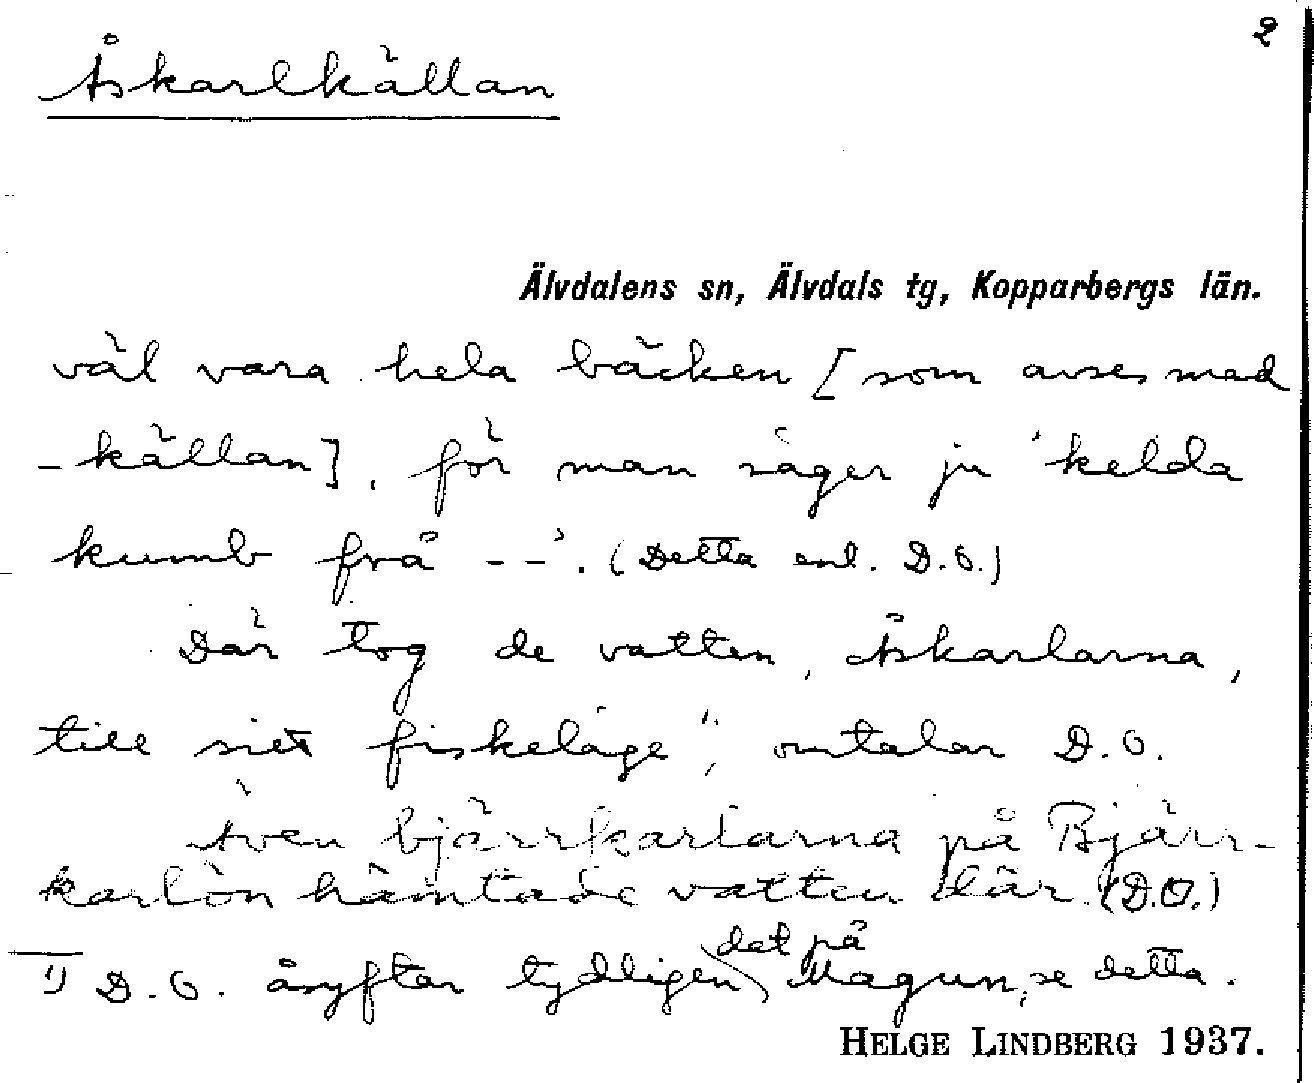 2
Åskarlkällan
Älvdalens sn, Älvdals tg, Kopparbergs län.
väl vara hela bäcken [som avses med
-källan], för man säger ju 'kelda
kumb frå --'. (Detta enl. D.O.)
Där tog de vatten, Åskarlarna,
till sitt fiskeläge", omtalar D.O.
Även bjärrkarlarna på Bjärr-
karlön hämtade vatten där. (D.O.)
1) D.O. åsyftar tydligen det på Magun, se detta.
HELGE LINDBERG 1937.